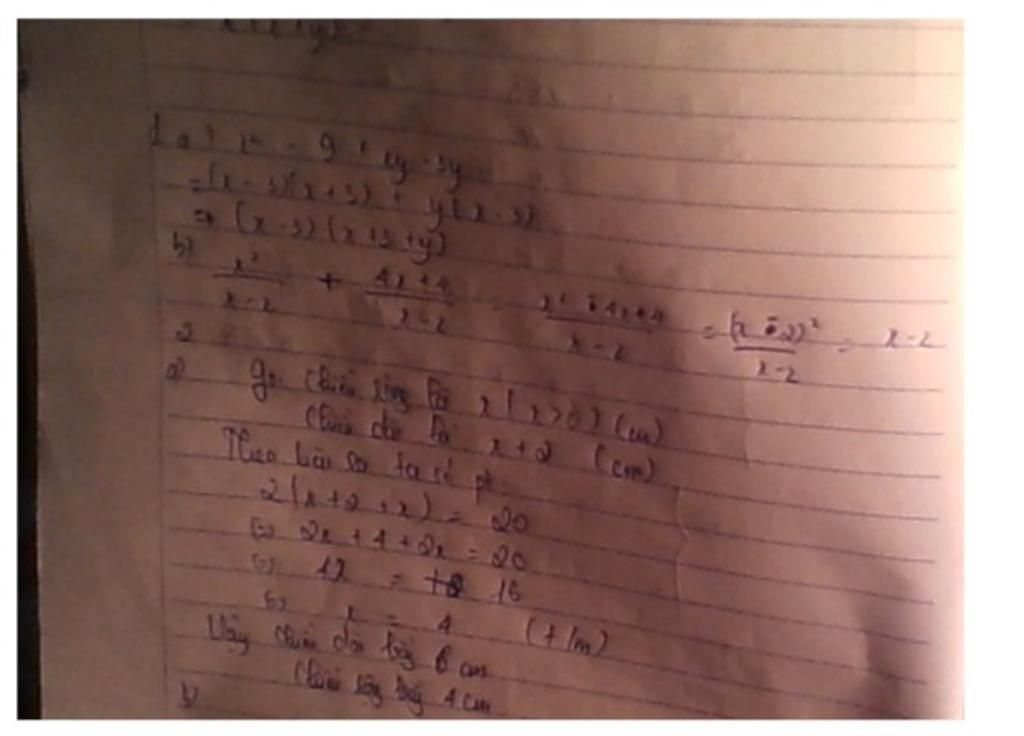 1 a) x² - 9 + xy - 3y
= (x - 3)(x + 3) + y(x - 3)
= (x - 3)(x + 3 + y)
b) x²/(x - 2) + (4x + 4)/(x - 2) = (x² - 4x + 4)/(x - 2) = (x - 2)²/(x - 2) = x - 2
2
a) gọi chiều rộng là x (x > 0) (cm)
Chiều dài là x + 2 (cm)
Theo bài ra ta có pt:
2(x + 2 + x) = 20
⇔ 2x + 4 + 2x = 20
⇔ 4x = 16
⇔ x = 4 (t/m)
Vậy chiều dài bằng 6 cm
Chiều rộng bằng 4 cm
b)